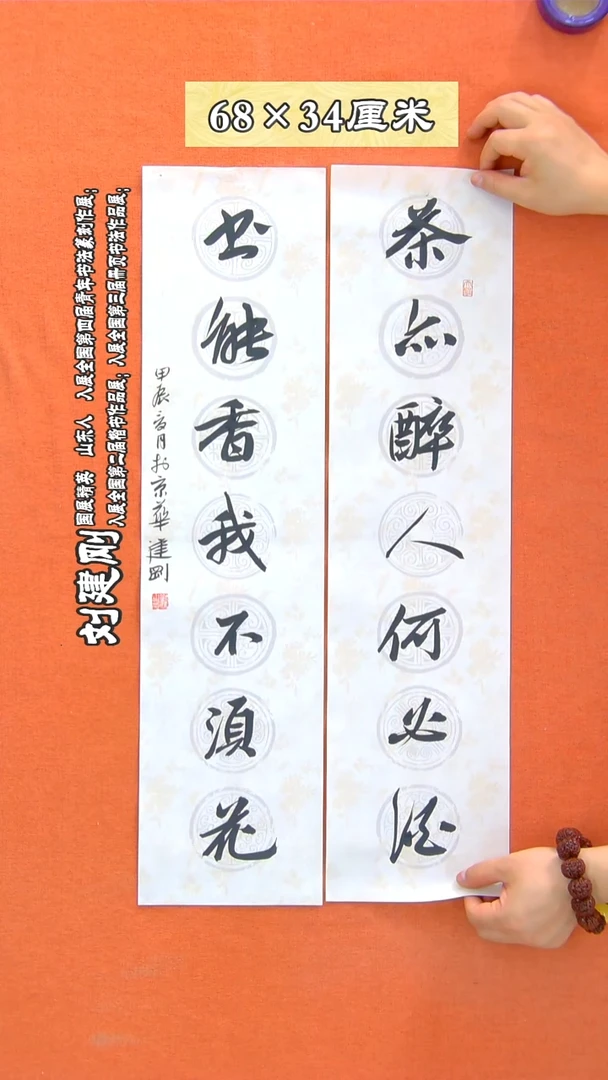 68×34厘米
茶亦醉人何必酒
书能香我不須花
甲辰
月於京華建刚
刘建刚
国展精英 山东人 入展全国第四届青年书法篆刻作展；
入展全国第二届楷书作品展；入展全国第三届册页书法作品展；